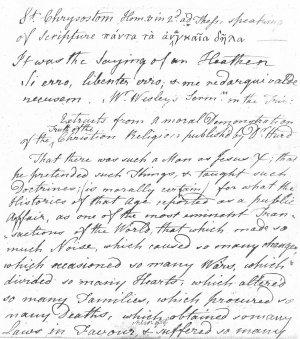 St. Chrysostom Hom. in 2d. ad Thess. speaking
of Scripture πάντα τὰ ἀναγκαῖα δῆλα
It was the Saying of an Heathen
Si erro, libenter erro, & me redargui valde
recusem. Mr. Wesley's Serm. in the
Extracts from a Moral Demonstration
of the Truth of the Christian Religion published by Dr. Hurd
That there was such a Man as Jesus X; that
he pretended such Things, & taught such
Doctrines, is morally certain; for what the
Histories of that Age reported as a public
Affair, as one of the most eminent Tran-
sactions of the World, that which made so
much Noise, which caused so many changes,
which occasioned so many Wars, which
divided so many Hearts, which altered
so many Families, which procured so
many Deaths, which obtained so many
Laws in Favour, & suffered so many